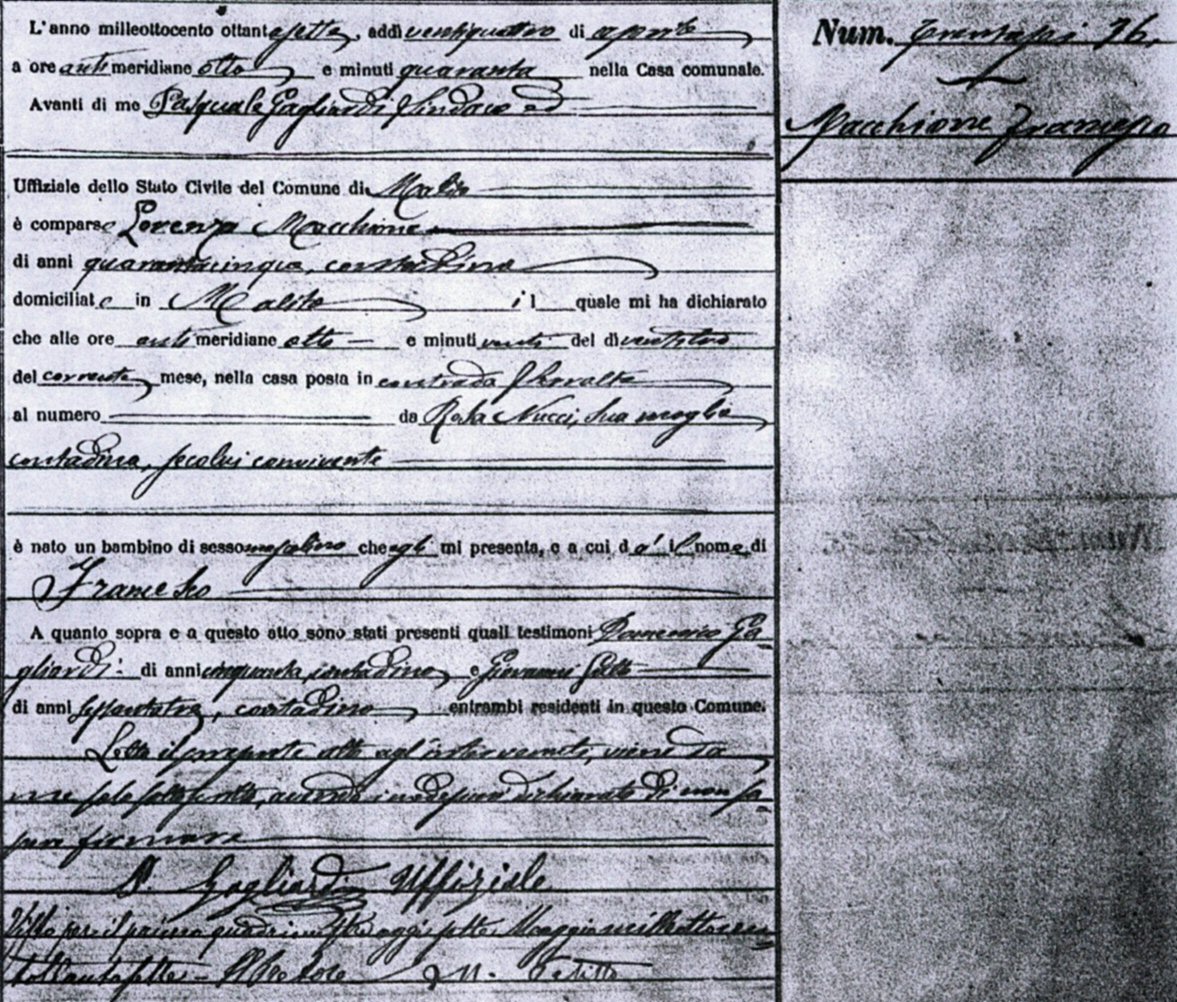 L'anno milleottocento ottantasette, addì ventiquattro di aprile
a ore antimeridiane otto e minuti quaranta nella Casa comunale.
Avanti di me Pasquale Gagliardi Sindaco ed
Uffiziale dello Stato Civile del Comune di Malito
è comparso Lorenzo Macchione
di anni quarantacinque, contadino
domiciliato in Malito il quale mi ha dichiarato
che alle ore antimeridiane otto e minuti venti del dì ventitre
del corrente mese, nella casa posta in contrada
al numero da Rosa Nucci, sua moglie
contadina, secolui convivente
è nato un bambino di sesso mascolino che egli mi presenta, e a cui dà il nome di
Francesco
A quanto sopra e a questo atto sono stati presenti quali testimoni Domenico Ga-
gliardi di anni cinquanta, contadino, e Giovanni
di anni sessantatre, contadino entrambi residenti in questo Comune.
Letto il presente atto agl'intervenuti, viene da
me solo sottoscritto, avendo i medesimi dichiarato di non sa-
pere firmare
P. Gagliardi Uffiziale
Visto per il primo quadrimestre oggi sette Maggio milleottocen-
tottantasette -
Num. Trentasei 36.
Macchione Francesco